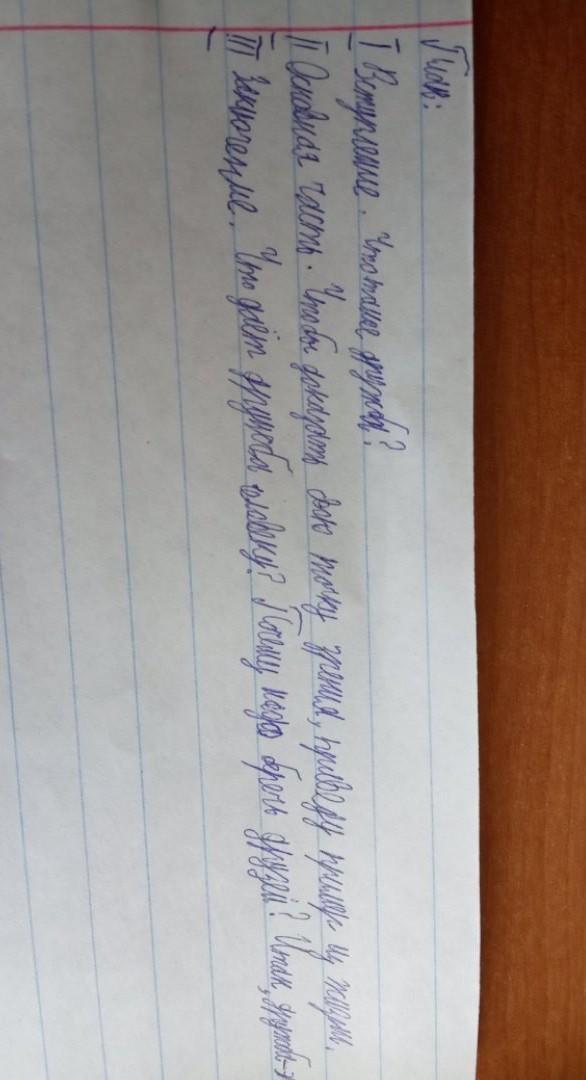 План:
I Вступление. Что такое дружба?
II Основная часть. Чтобы доказать свою точку зрения, приведу пример из жизни.
III Заключение. Что даёт дружба человеку? Почему надо беречь друзей? Итак, дружба-э